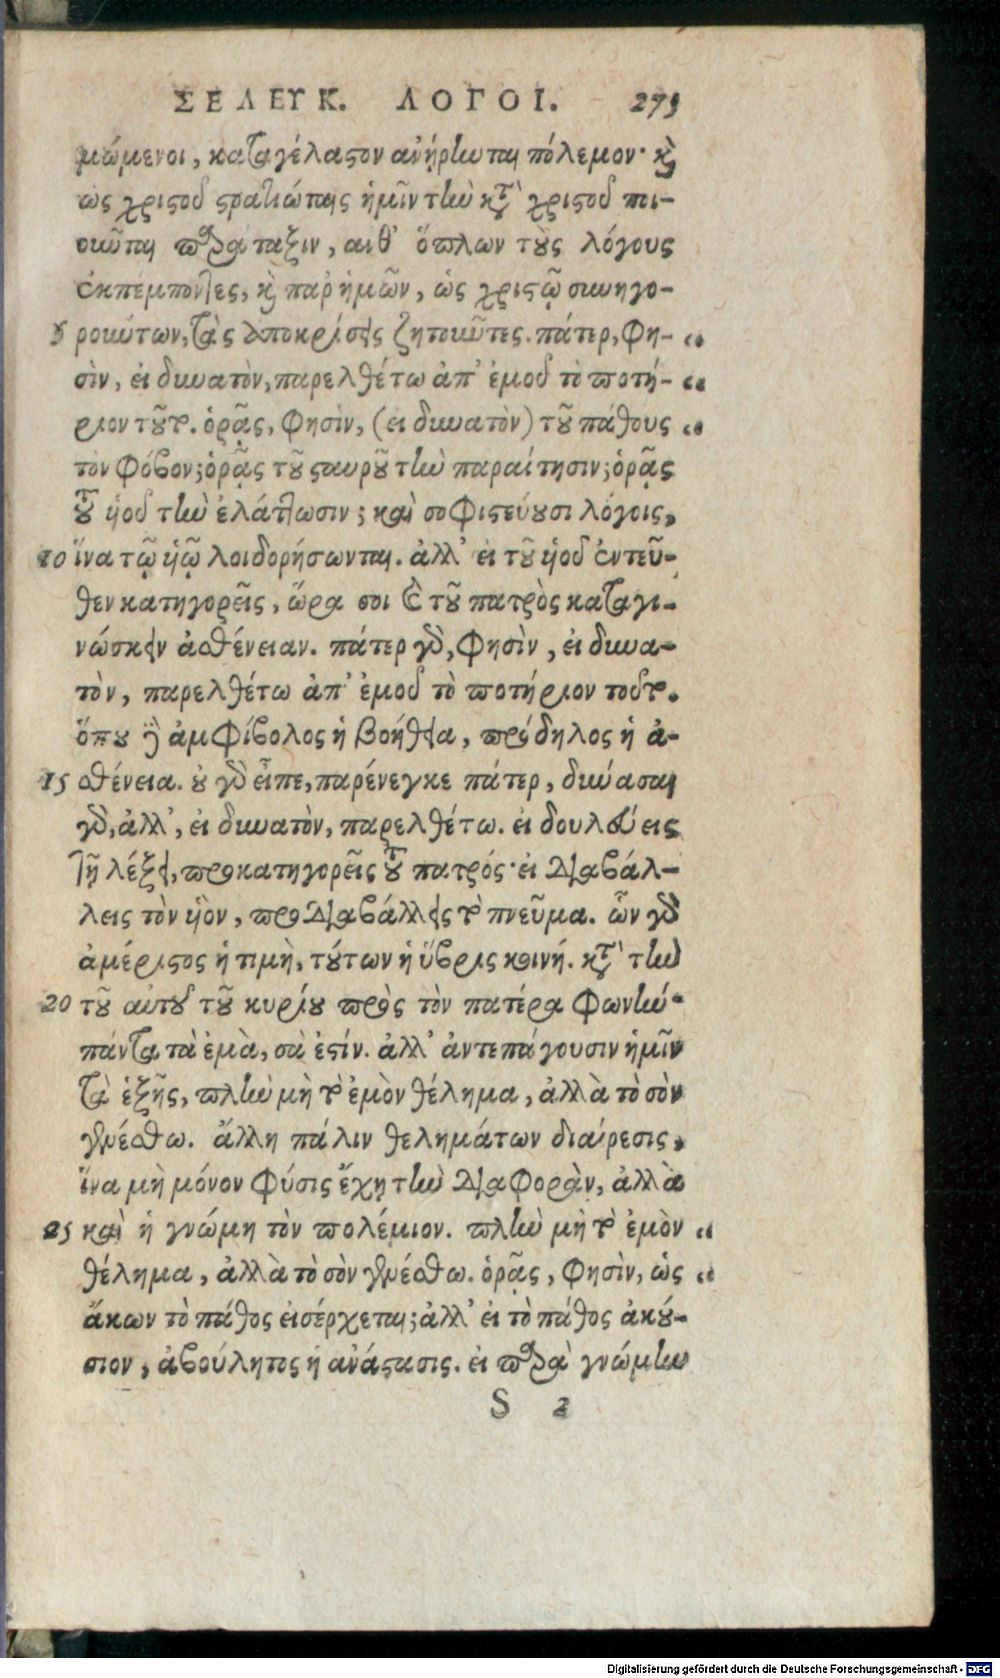 ΣΕΛΕΥΚ. ΛΟΓΟΙ. 275
μώμενοι, καταγέλαστον ἀνῄρηνται πόλεμον· καὶ
ὡς χριστοῦ στρατιώταις ἡμῖν τὴν κατὰ χριστοῦ ποι-
οῦνται παράταξιν, ἀνθ' ὅπλων τοὺς λόγους
ἐκπέμποντες, καὶ παρ' ἡμῶν, ὡς χριστῷ συνηγο-
5 ρούντων, τὰς ἀποκρίσεις ζητοῦντες. πάτερ, φη- “
σὶν, εἰ δυνατὸν, παρελθέτω ἀπ' ἐμοῦ τὸ ποτή- “
ριον τοῦτο. ὁρᾷς, φησὶν, (εἰ δυνατὸν) τοῦ πάθους “
τὸν φόβον; ὁρᾷς τοῦ σταυροῦ τὴν παραίτησιν; ὁρᾷς
τοῦ υἱοῦ τὴν ἐλάττωσιν; καὶ σοφιστεύουσι λόγοις,
10 ἵνα τῷ υἱῷ λοιδορήσωνται. ἀλλ' εἰ τοῦ υἱοῦ ἐντεῦ-
θεν κατηγορεῖς, ὥρα σοι καὶ τοῦ πατρὸς καταγι-
νώσκειν ἀσθένειαν. πάτερ γὰρ, φησὶν, εἰ δυνα-
τὸν, παρελθέτω ἀπ' ἐμοῦ τὸ ποτήριον τοῦτο.
ὅπου δὲ ἀμφίβολος ἡ βοήθεια, πρόδηλος ἡ ἀ-
15 σθένεια. οὐ γὰρ εἶπε, παρένεγκε πάτερ, δύνασαι
γὰρ, ἀλλ', εἰ δυνατὸν, παρελθέτω. εἰ δουλεύεις
τῇ λέξει, προκατηγορεῖς τοῦ πατρός· εἰ διαβάλ-
λεις τὸν υἱὸν, προδιαβάλλεις τὸ πνεῦμα. ὧν γὰρ
ἀμέριστος ἡ τιμὴ, τούτων ἡ ὕβρις κοινή. κατὰ τὴν
20 τοῦ αὐτοῦ τοῦ κυρίου πρὸς τὸν πατέρα φωνήν·
πάντα τὰ ἐμὰ, σὰ ἐστίν. ἀλλ' ἀντεπάγουσιν ἡμῖν
τὰ ἑξῆς, πλὴν μὴ τὸ ἐμὸν θέλημα, ἀλλὰ τὸ σὸν
γενέσθω. ἄλλη πάλιν θελημάτων διαίρεσις,
ἵνα μὴ μόνον φύσις ἔχῃ τὴν διαφορὰν, ἀλλὰ
25 καὶ ἡ γνώμη τὸν πολέμιον. πλὴν μὴ τὸ ἐμὸν “
θέλημα, ἀλλὰ τὸ σὸν γενέσθω. ὁρᾷς, φησὶν, ὡς “
ἄκων τὸ πάθος εἰσέρχεται; ἀλλ' εἰ τὸ πάθος ἀκού-
σιον, ἀβούλητος ἡ ἀνάστασις. εἰ παρὰ γνώμην
S 2
Digitalisierung gefördert durch die Deutsche Forschungsgemeinschaft - DFG